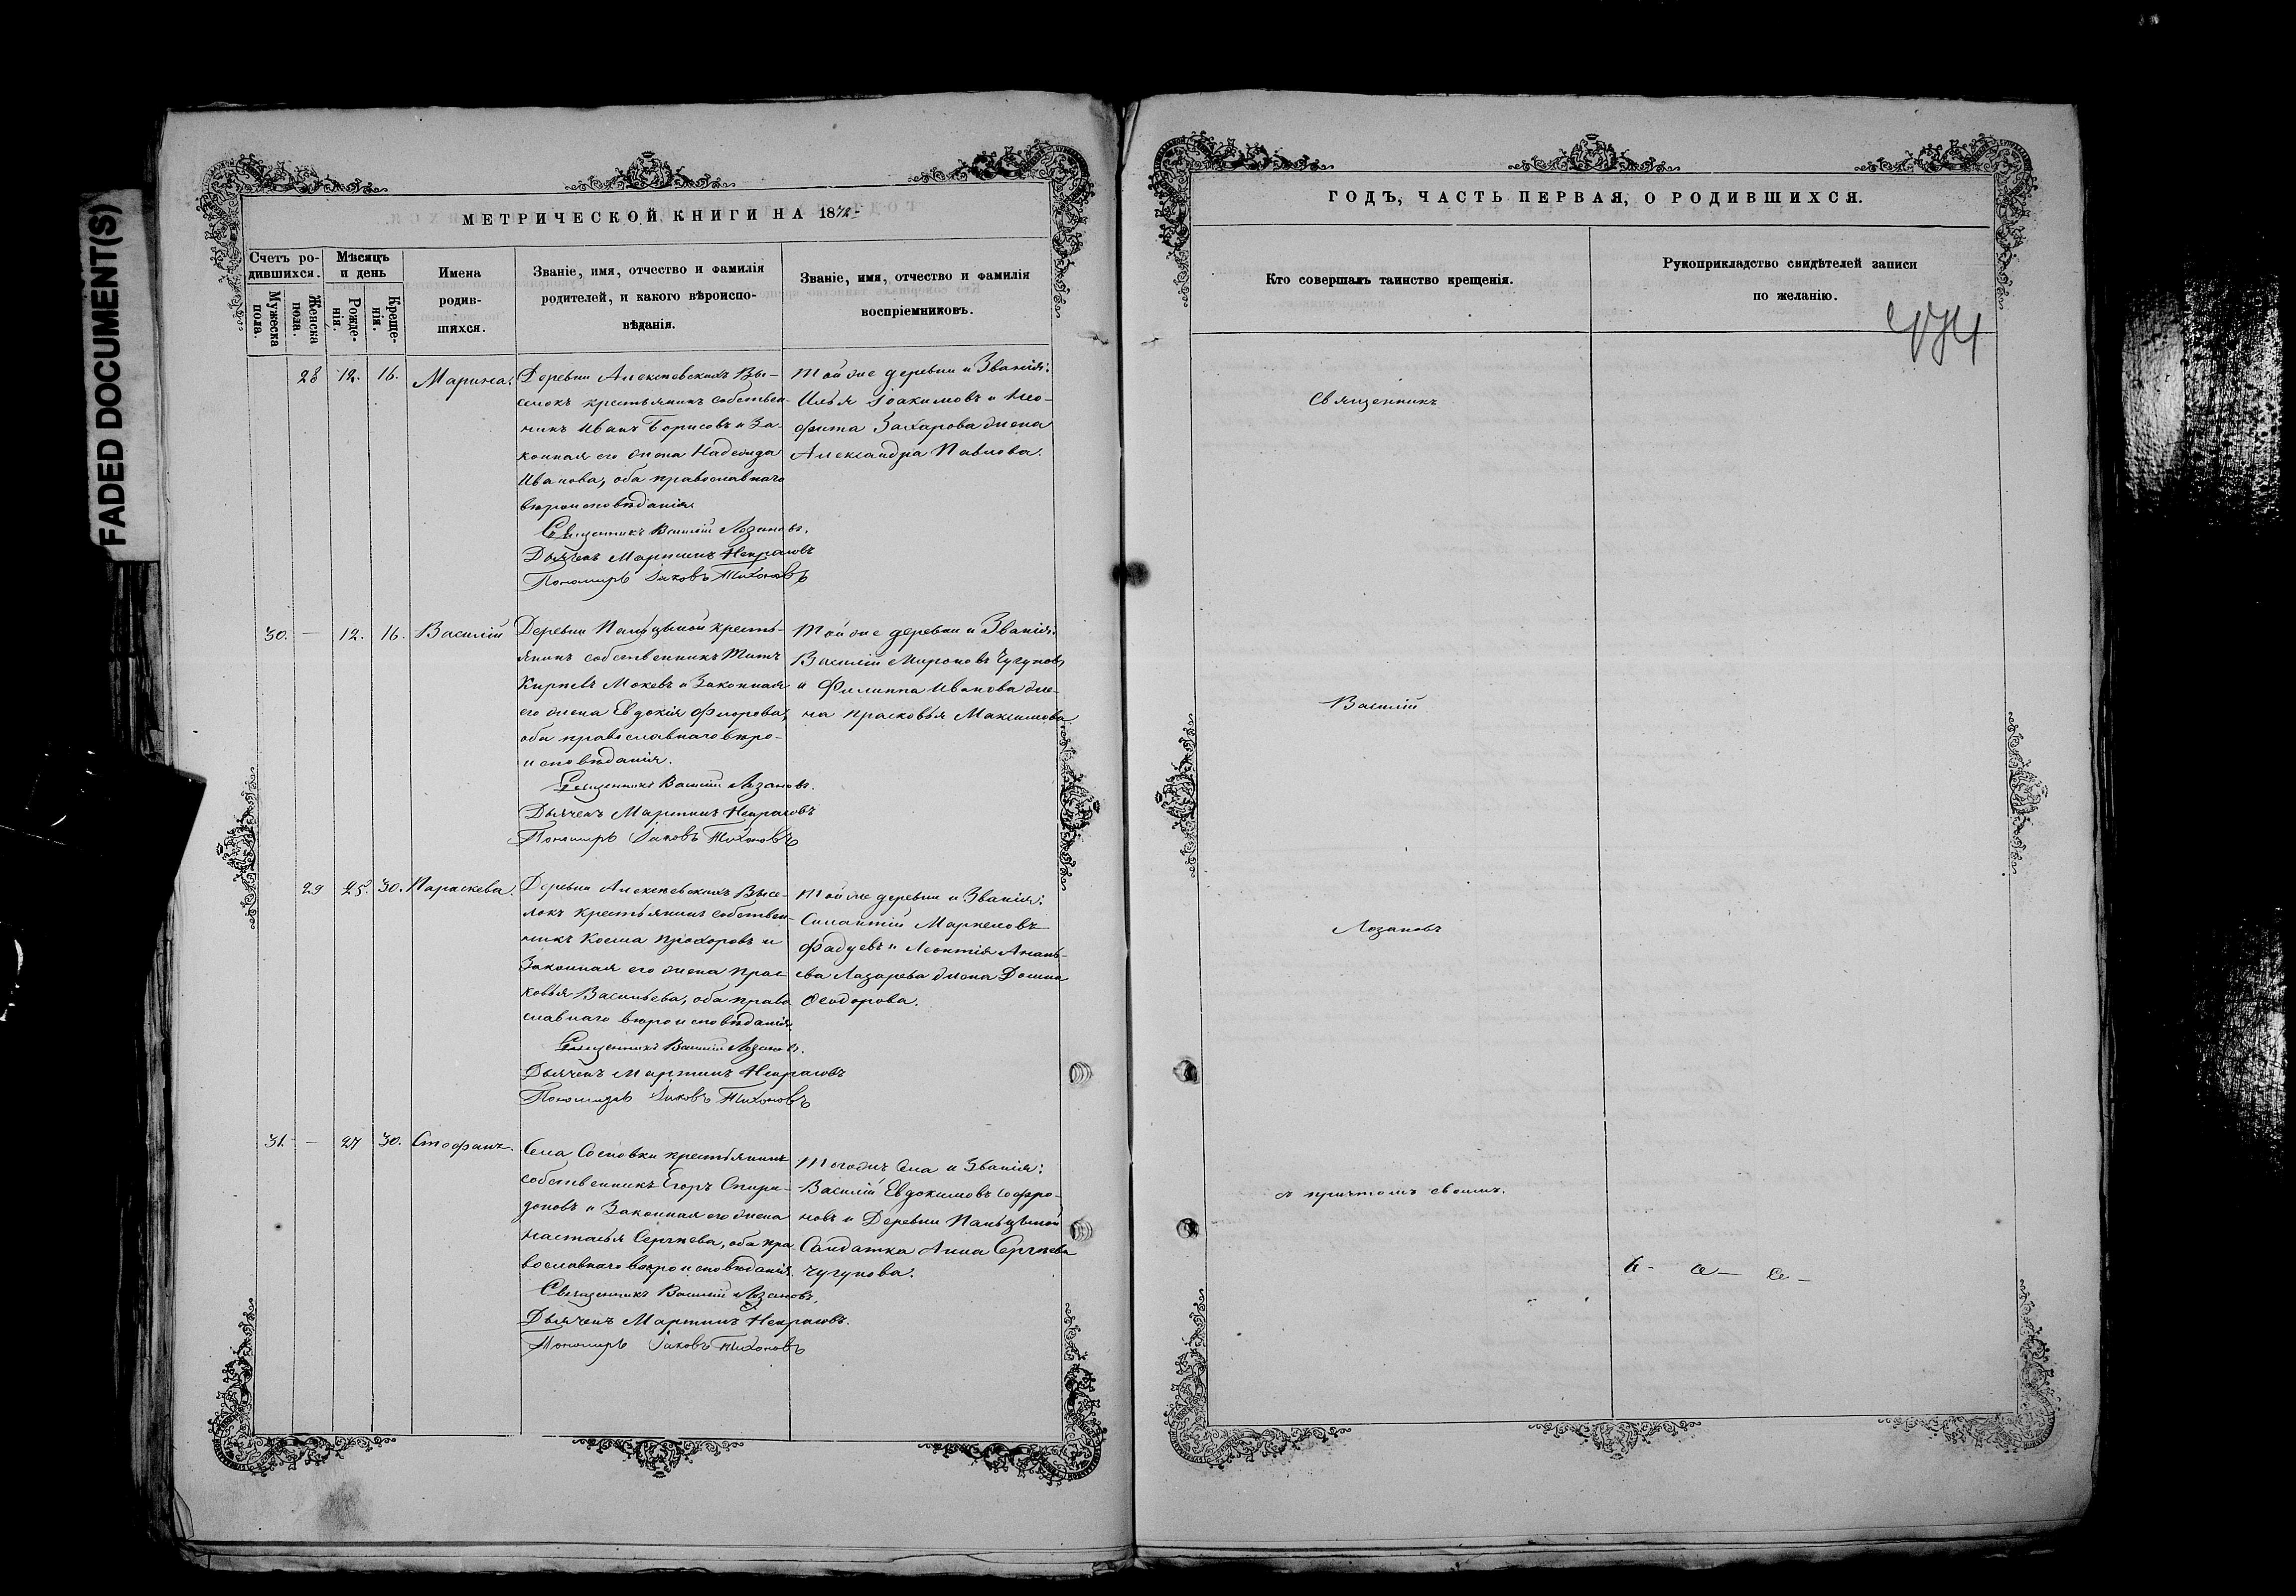 FADED DOCUMENT(S)
МЕТРИЧЕСКОЙ КНИГИ НА 1872-
Счетъ ро-
дившихся.
Мужеска пола.
Женска пола.
Мѣсяцъ и день
Рожде-
нія.
Креще-
нія.
Имена
родив-
шихся.
Званіе, имя, отчество и фамилія
родителей, и какого вѣроиспо-
вѣданія.
Званіе, имя, отчество и фамилія
воспріемниковъ.
28 12. 16. Марина.
Деревни Алексѣевскихъ Вы-
селокъ крестьянинъ собствен-
никъ Иванъ Борисовъ и За-
конная его жена Надежда
Иванова, оба православнаго
вѣроисповѣданія.
Священникъ Василій Лозановъ.
Дьячекъ Мартинъ Некрасовъ
Пономарь Іаковъ Тихоновъ
Той же деревни и Званія:
Илья Іоакимовъ и Нео-
фита Захарова жена
Александра Павлова.
30. — 12. 16. Василій
Деревни крестья-
янинъ собственникъ Титъ
Мокевъ и Законная
его жена Евдокія Флорова,
оба православнаго вѣро-
исповѣданія.
Священникъ Василій Лозановъ.
Дьячекъ Мартинъ Некрасовъ
Пономарь Іаковъ Тихоновъ
Той же деревни и Званія:
Василій Мироновъ Чугуновъ
и Филиппа Иванова же-
на Прасковья Максимова
29 25. 30. Параскева.
Деревни Алексѣевскихъ Высе-
локъ крестьянинъ собствен-
никъ Косма Прохоровъ и
Законная его жена Прас-
ковья Васильева, оба право
славнаго вѣроисповѣданія.
Священникъ Василій Лозановъ.
Дьячекъ Мартинъ Некрасовъ
Пономарь Іаковъ Тихоновъ
Той же деревни и Званія:
Маркеловъ
Фадѣевъ и Леонтія Анань-
ева Лазарева жена Домна
Ѳеодорова.
31. — 27 30. Стефанъ.
Села Сосновки крестьянинъ
собственникъ Егоръ Спири-
доновъ и Законная его жена
Настасья Сергѣева, оба пра
вославнаго вѣроисповѣданія.
Священникъ Василій Лозановъ.
Дьячекъ Мартинъ Некрасовъ.
Пономарь Іаковъ Тихоновъ
Тогожъ Села и Званія:
Василій Евдокимовъ Софро-
новъ и Деревни
Солдатка Анна Сергѣева
Чугунова.
ГОДЪ, ЧАСТЬ ПЕРВАЯ, О РОДИВШИХСЯ.
Кто совершалъ таинство крещенія.
Рукоприкладство свидѣтелей записи
по желанію.
Священникъ
Василій
Лозановъ
съ причтомъ своимъ.